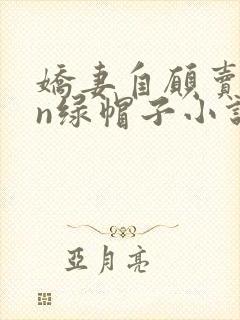 嬌妻自願賣
n绿帽子小説
亞月亮